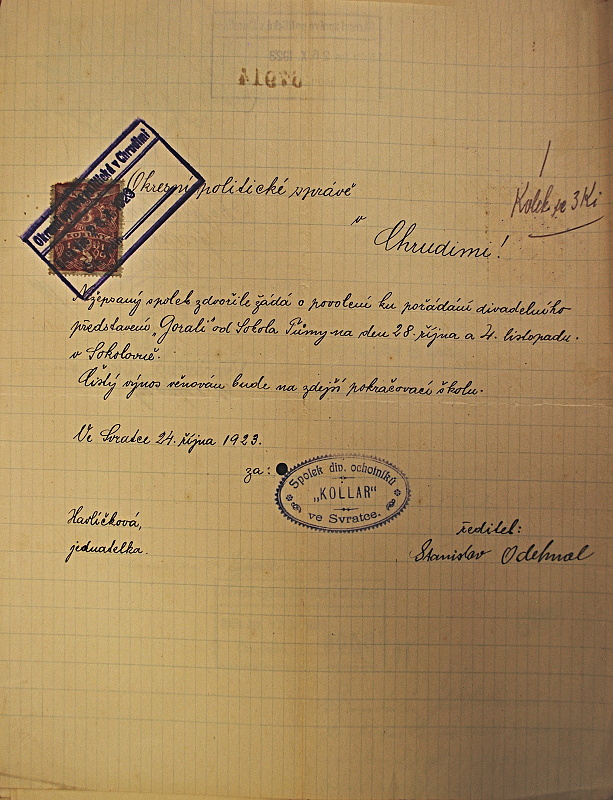 41670
Okresní politické správě
v
Chrudimi!
Kolek za 3 Kč
Okresní v Chrudimi
Nížepsaný spolek zdvořile žádá o povolení ku pořádání divadelního
představení „Gorali" od Sokola Tůmy na den 28. října a 4. listopadu
v Sokolovně.
Čistý výnos věnován bude na zdejší pokračovací školu.
Ve Svratce 24. října 1923.
za:
Spolek div. ochotníků
„KOLLAR"
ve Svratce.
Havlíčková,
jednatelka.
ředitel:
Stanislav Odehnal